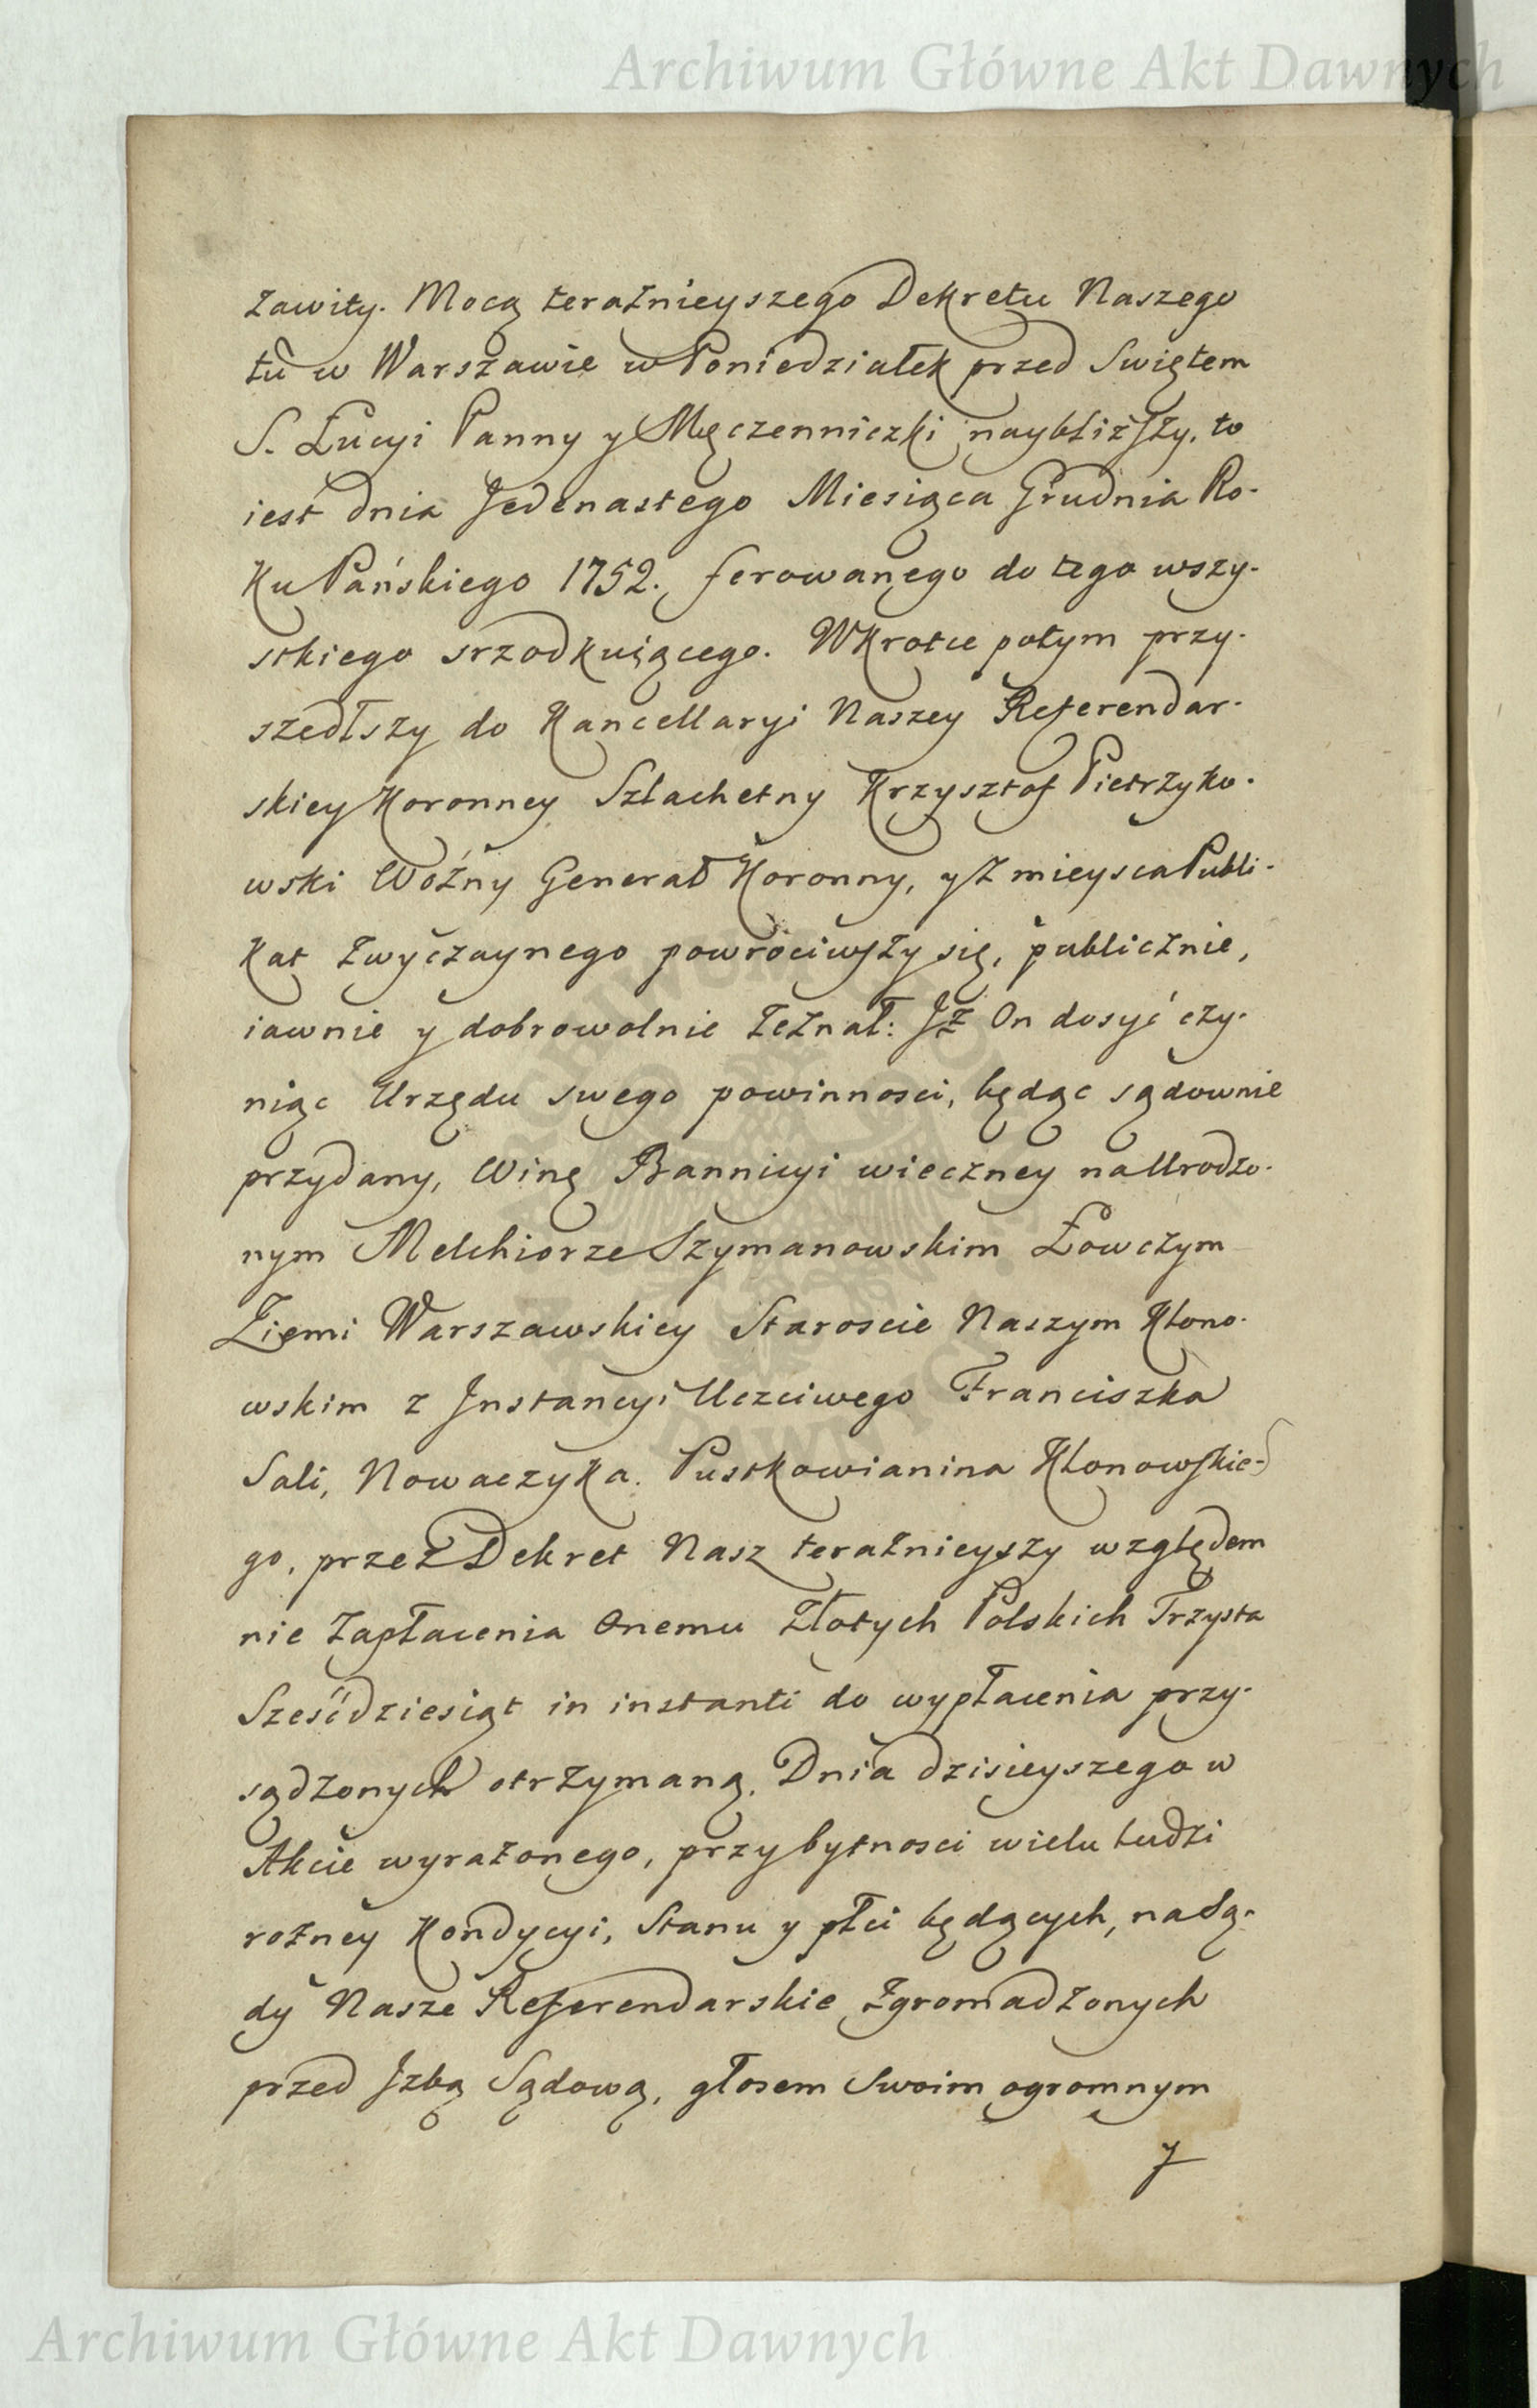 Archiwum Główne Akt Dawnych
zawity. Mocą teraznieyszego Dekretu Naszego
tu w Warszawie w Poniedziałek przed Swiętem
S. Łucyi Panny y Męczenniczki naybliższy, to
iest dnia Jedenastego Miesiąca Grudnia Ro-
ku Pańskiego 1752. ferowanego do tego wszy-
stkiego srzodkuiącego. Wkrotce potym przy-
szedłszy do Kancellaryi Naszey Referendar-
skiey Koronney Szlachetny Krzysztof Pietrzyko-
wski Woźny Generał Koronny, y z mieysca Publi-
kat zwyczaynego powrociwszy się, publicznie,
iawnie y dobrowolnie zeznał: Jż On dosyć czy-
niąc Urzędu swego powinnosci, będąc sądownie
przydany, Winę Bannicyi wieczney na Urodzo-
nym Melchiorze Szymanowskim Łowczym
Ziemi Warszawskiey Staroscie Naszym Klono-
wskim z Jnstancyi Uczciwego Franciszka
Sali, Nowaczyka. Pustkowianina Klonowskie-
go, przez Dekret Nasz teraznieyszy względem
nie zapłacenia Onemu Złotych Polskich Trzysta
Sześćdziesiąt in instanti do wypłacenia przy-
sądzonych otrzymaną. Dnia dzisieyszego w
Akcie wyrazonego, przy bytnosci wielu ludzi
rozney Kondycyi, Stanu y płci będących, na Są-
dy Nasze Referendarskie zgromadzonych
przed Jzbą Sądową, głosem Swoim ogromnym
y
Archiwum Główne Akt Dawnych